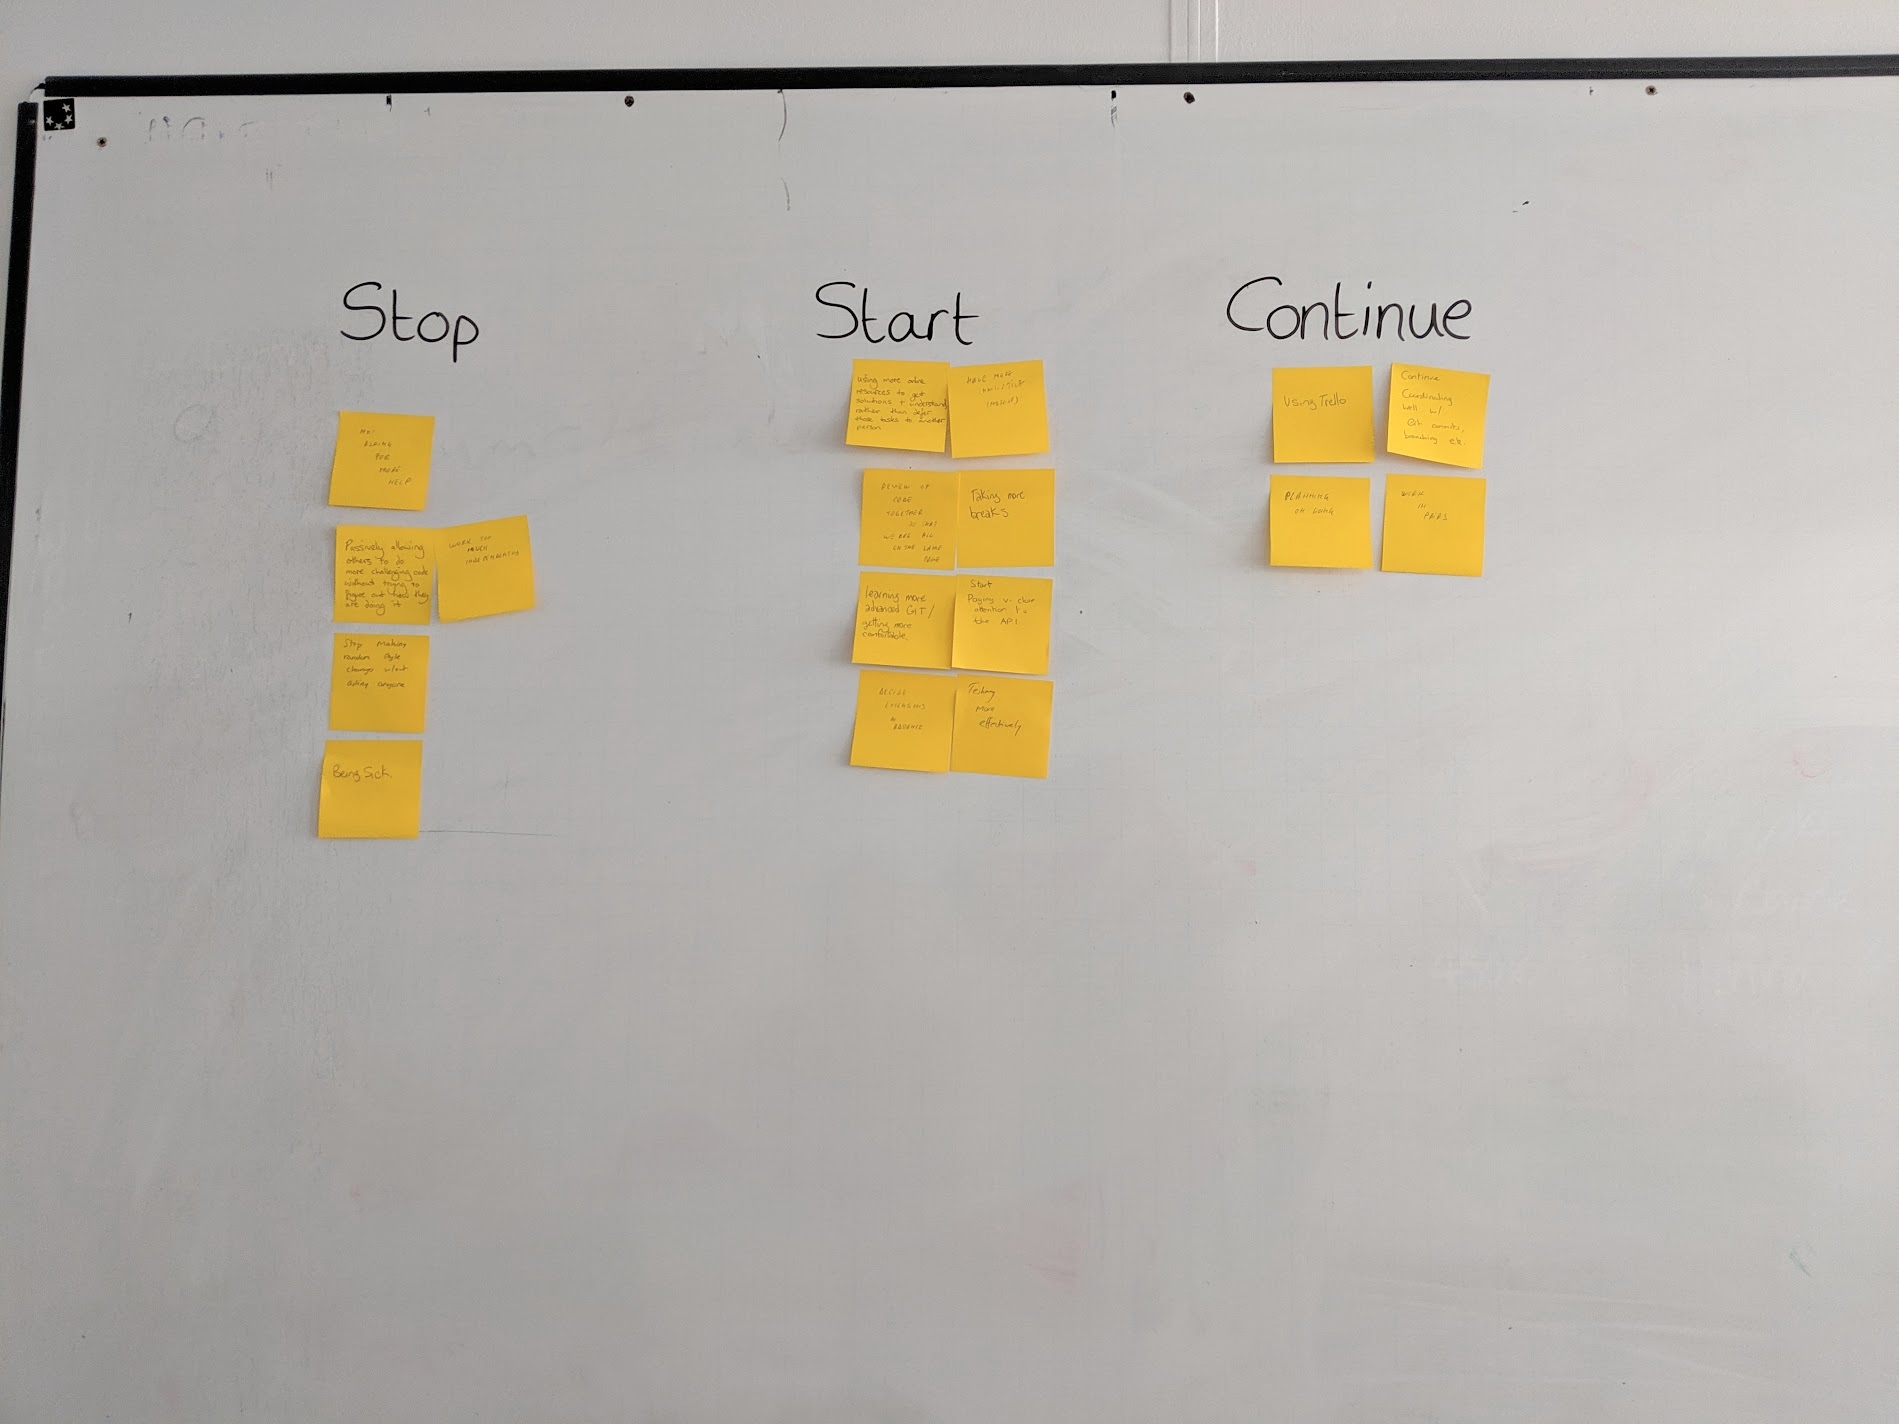 Stop
Start
Continue
NOT
ASKING
FOR
MORE
HELP
Passively allowing
others to do
more challenging code
without trying to
figure out how they
are doing it
WORK TOO
MUCH
INDEPENDENTLY
Stop Making
random style
changes w/out
asking anyone
Being Sick.
using more online
resources to get
solutions + understand
rather than defer
those tasks to another
person
HAVE MORE
REVIEW OF
CODE
TOGETHER
WE ARE ALL
ON THE SAME
PAGE
Taking more
breaks
learning more
advanced GIT/
getting more
comfortable
Start
Paying v. close
attention to
the API
DECIDE
Testing
more
effectively
Using Trello
Continue
Coordinating
well w/
Git commits,
branching etc.
PLANNING
WORK
IN
PAIRS